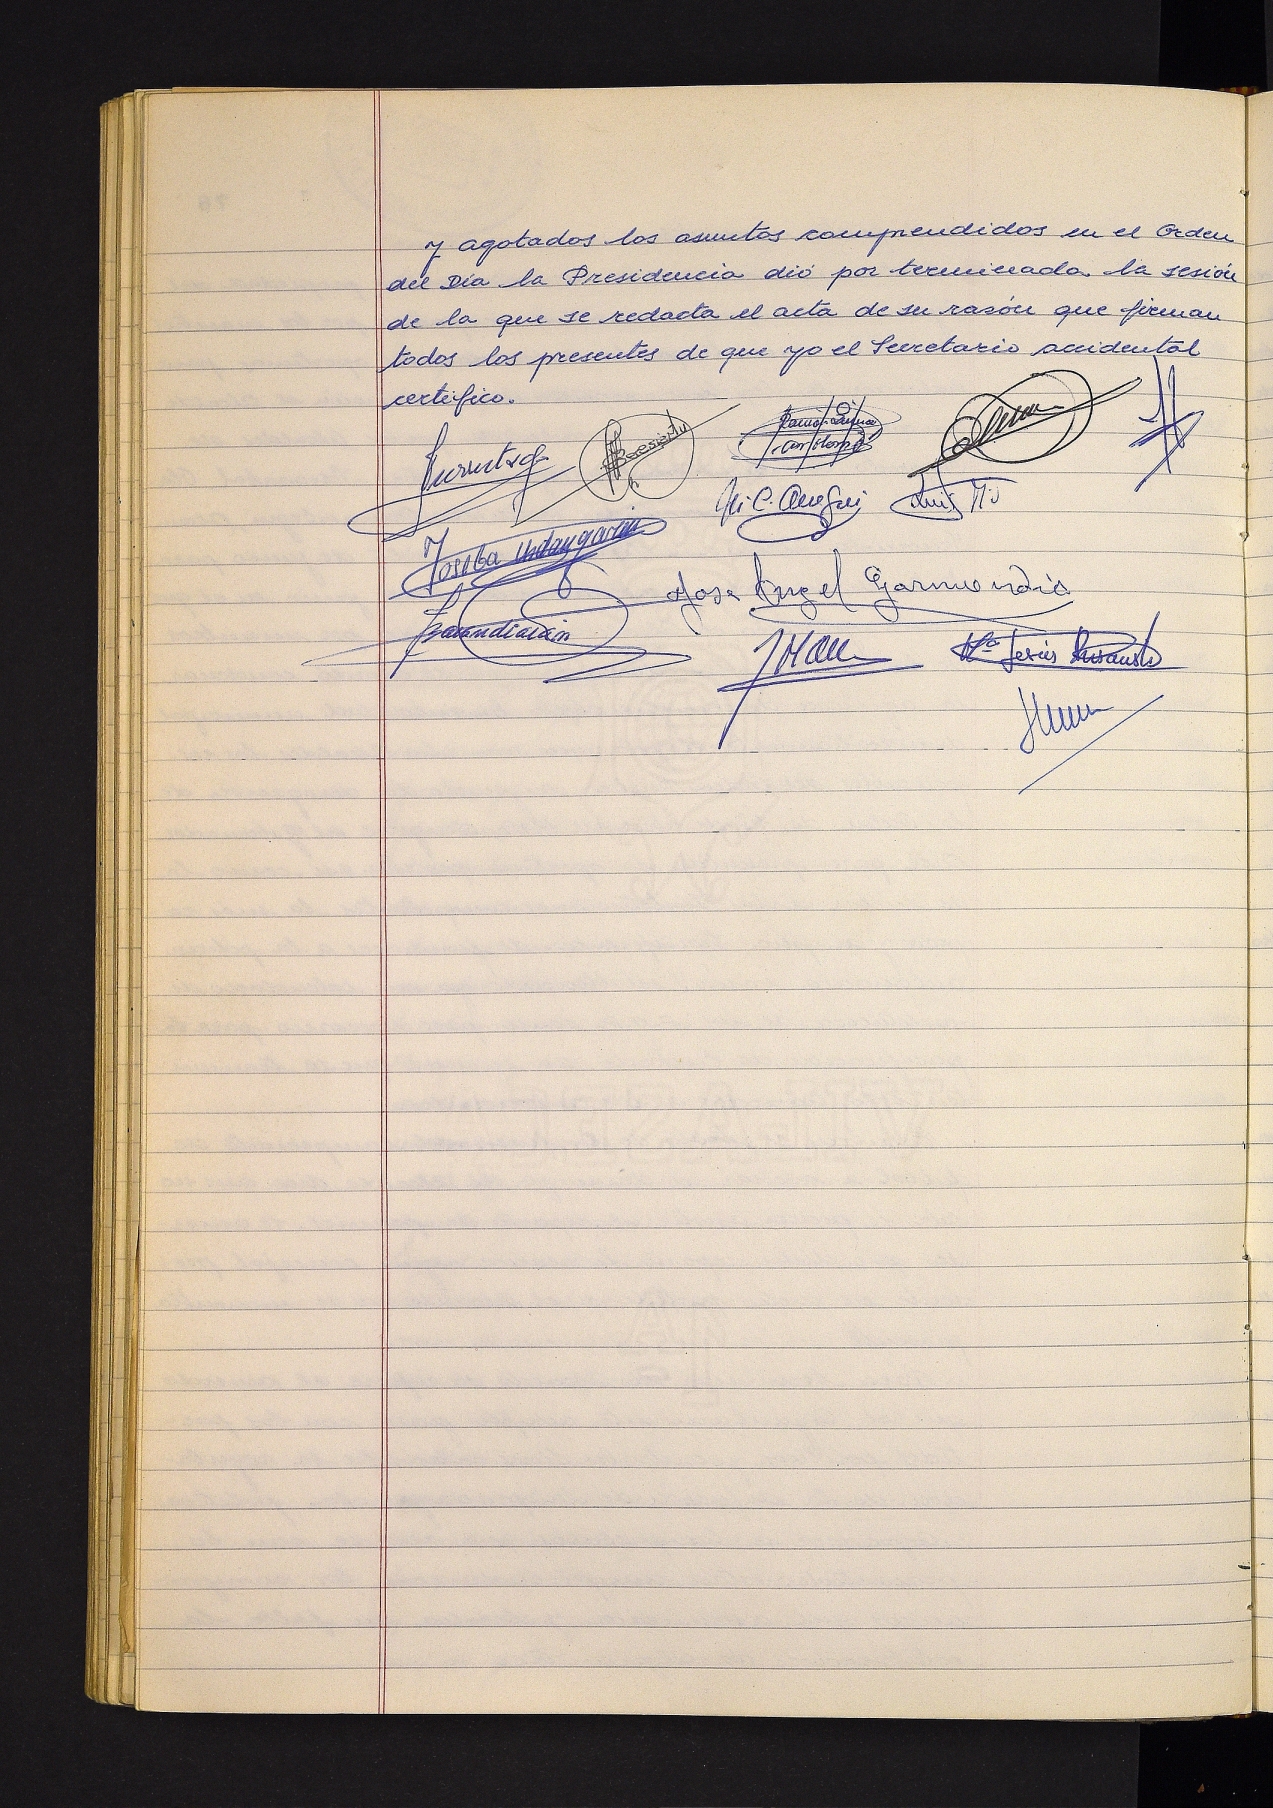 y agotados los asuntos comprendidos en el Orden
del Día la Presidencia dió por terminada la sesión
de la que se redacta el acta de su razón que firman
todos los presentes de que yo el Secretario accidental
certifico.
Joseba Urdangarin
Jose Angel Garmendia
Barandiarán
Mª Jesús